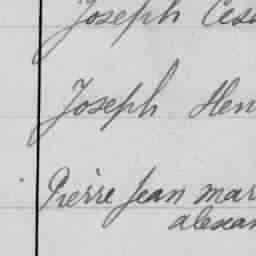 Joseph Cesa
Joseph Hen
Pierre Jean mar
alexan